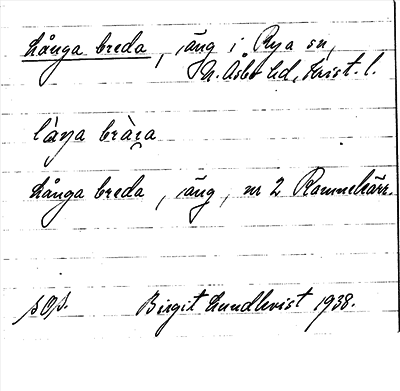 Långa breda, äng i Rya sn,
N. Åsbo hd, Krist. l.
Långa breda, äng, nr 2 Rammekärr.
Birgit Lundkvist 1938.